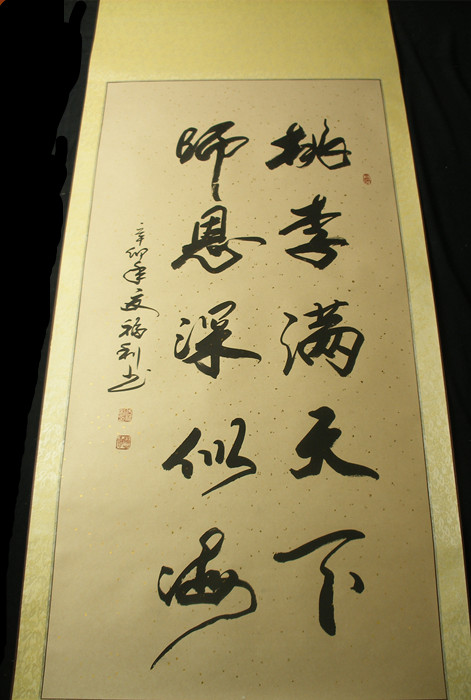 桃李满天下
师恩深似海
辛卯年夏福利书